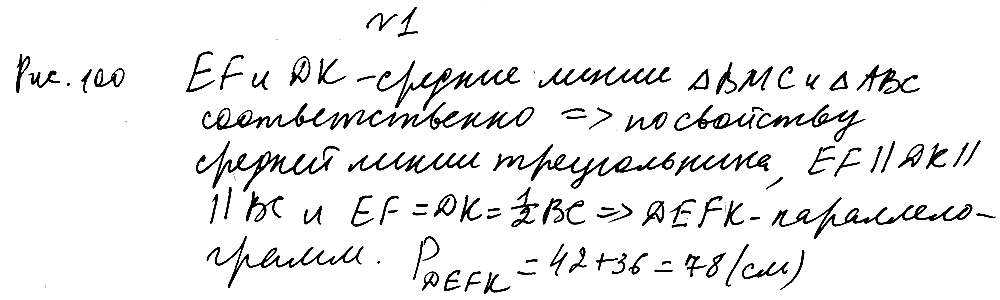 №1
Рис. 100 EF и DK – средние линии △BMC и △ABC
соответственно => по свойству
средней линии треугольника, EF || DK ||
|| BC и EF = DK = 1/2 BC => DEFK – параллело-
грамм. P_DEFK = 42 + 36 = 78 (см)